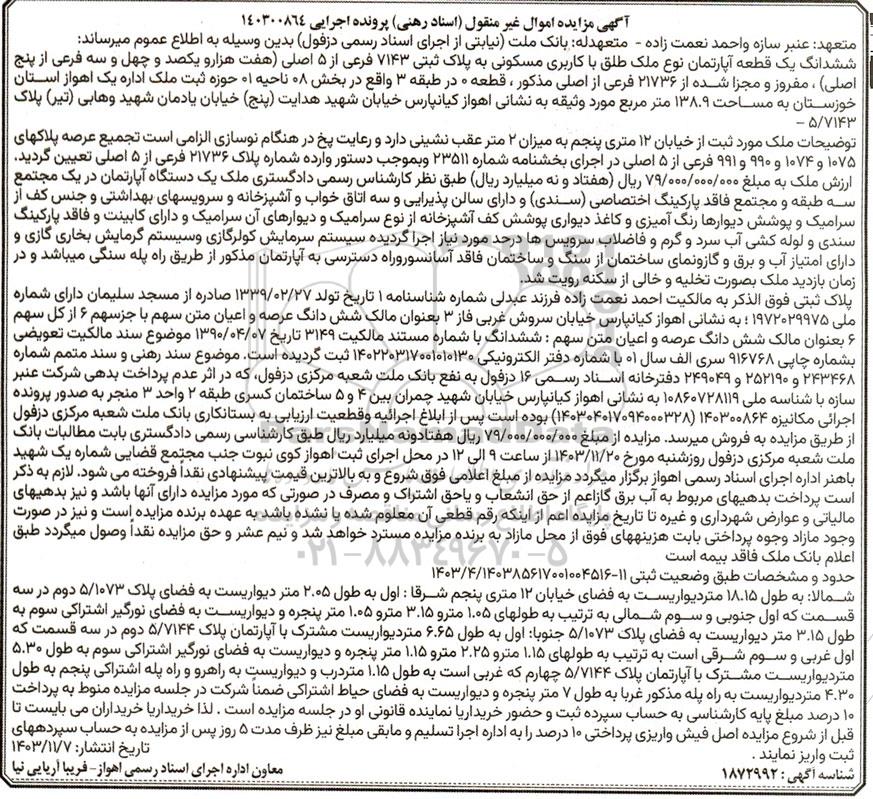 آگهی مزایده اموال غیر منقول (اسناد رهنی) پرونده اجرایی ۱۴۰۳۰۰۸۶۴
متعهد: عنبر سازه واحمد نعمت زاده - متعهدله: بانک ملت (نیابتی از اجرای اسناد رسمی دزفول) بدین وسیله به اطلاع عموم میرساند:
ششدانگ یک قطعه آپارتمان نوع ملک طلق با کاربری مسکونی به پلاک ثبتی ۷۱۴۳ فرعی از ۵ اصلی (هفت هزارو یکصد و چهل و سه فرعی از پنج
اصلی) ، مفروز و مجزا شده از ۲۱۷۳۶ فرعی از اصلی مذکور ، قطعه ۰ در طبقه ۳ واقع در بخش ۰۸ ناحیه ۰۱ حوزه ثبت ملک اداره یک اهواز استان
خوزستان به مساحت ۱۳۸.۹ متر مربع مورد وثیقه به نشانی اهواز کیانپارس خیابان شهید هدایت (پنج) خیابان یادمان شهید وهابی (تیر) پلاک
۵/۷۱۴۳ –
توضیحات ملک مورد ثبت از خیابان ۱۲ متری پنجم به میزان ۲ متر عقب نشینی دارد و رعایت پخ در هنگام نوسازی الزامی است تجمیع عرصه پلاکهای
۱۰۷۵ و ۱۰۷۴ و ۹۹۰ و ۹۹۱ فرعی از ۵ اصلی در اجرای بخشنامه شماره ۲۳۵۱۱ وبموجب دستور وارده شماره پلاک ۲۱۷۳۶ فرعی از ۵ اصلی تعیین گردید.
ارزش ملک به مبلغ ۷۹/۰۰۰/۰۰۰/۰۰۰ ریال (هفتاد و نه میلیارد ریال) طبق نظر کارشناس رسمی دادگستری ملک یک دستگاه آپارتمان در یک مجتمع
سه طبقه و مجتمع فاقد پارکینگ اختصاصی (سندی) و دارای سالن پذیرایی و سه اتاق خواب و آشپزخانه و سرویسهای بهداشتی و جنس کف از
سرامیک و پوشش دیوارها رنگ آمیزی و کاغذ دیواری پوشش کف آشپزخانه از نوع سرامیک و دیوارهای آن سرامیک و دارای کابینت و فاقد پارکینگ
سندی و لوله کشی آب سرد و گرم و فاضلاب سرویس ها درحد مورد نیاز اجرا گردیده سیستم سرمایش کولرگازی وسیستم گرمایش بخاری گازی و
دارای امتیاز آب و برق و گازونمای ساختمان از سنگ و ساختمان فاقد آسانسوروراه دسترسی به آپارتمان مذکور از طریق راه پله سنگی میباشد و در
زمان بازدید ملک بصورت تخلیه و خالی از سکنه رویت شد.
پلاک ثبتی فوق الذکر به مالکیت احمد نعمت زاده فرزند عبدلی شماره شناسنامه ۱ تاریخ تولد ۱۳۳۹/۰۲/۲۷ صادره از مسجد سلیمان دارای شماره
ملی ۱۹۷۲۰۲۹۹۷۵ ؛ به نشانی اهواز کیانپارس خیابان سروش غربی فاز ۳ بعنوان مالک شش دانگ عرصه و اعیان متن سهم با جزسهم ۶ از کل سهم
۶ بعنوان مالک شش دانگ عرصه و اعیان متن سهم : ششدانگ با شماره مستند مالکیت ۳۱۴۹ تاریخ ۱۳۹۰/۰۴/۰۷ موضوع سند مالکیت تعویضی
بشماره چاپی ۹۱۶۷۶۸ سری الف سال ۰۱ با شماره دفتر الکترونیکی ۱۴۰۲۲۰۳۱۷۰۰۱۰۱۰۱۳۰ ثبت گردیده است. موضوع سند رهنی و سند متمم شماره
۲۴۳۴۶۸ و ۲۵۲۱۹۰ و ۲۴۹۰۴۹ دفترخانه اسناد رسمی ۱۶ دزفول به نفع بانک ملت شعبه مرکزی دزفول، که در اثر عدم پرداخت بدهی شرکت عنبر
سازه با شناسه ملی ۱۰۸۶۰۷۲۸۱۱۹ به نشانی اهواز کیانپارس خیابان شهید چمران بین ۴ و ۵ ساختمان کسری طبقه ۲ واحد ۳ منجر به صدور پرونده
اجرائی مکانیزه ۱۴۰۳۰۰۸۶۴ (۱۴۰۳۰۴۰۱۷۰۹۴۰۰۰۳۲۸) بوده است پس از ابلاغ اجرائیه وقطعیت ارزیابی به بستانکاری بانک ملت شعبه مرکزی دزفول
از طریق مزایده به فروش میرسد. مزایده از مبلغ ۷۹/۰۰۰/۰۰۰/۰۰۰ ریال هفتادونه میلیارد ریال طبق کارشناسی رسمی دادگستری بابت مطالبات بانک
ملت شعبه مرکزی دزفول روزشنبه مورخ ۱۴۰۳/۱۱/۲۰ از ساعت ۹ الی ۱۲ در محل اجرای ثبت اهواز کوی نبوت جنب مجتمع قضایی شماره یک شهید
باهنر اداره اجرای اسناد رسمی اهواز برگزار میگردد مزایده از مبلغ اعلامی فوق شروع و به بالاترین قیمت پیشنهادی نقداً فروخته می شود. لازم به ذکر
است پرداخت بدهیهای مربوط به آب برق گازاعم از حق انشعاب و یاحق اشتراک و مصرف در صورتی که مورد مزایده دارای آنها باشد و نیز بدهیهای
مالیاتی و عوارض شهرداری و غیره تا تاریخ مزایده اعم از اینکه رقم قطعی آن معلوم شده یا نشده باشد به عهده برنده مزایده است و نیز در صورت
وجود مازاد وجوه پرداختی بابت هزینههای فوق از محل مازاد به برنده مزایده مسترد خواهد شد و نیم عشر و حق مزایده نقداً وصول میگردد طبق
اعلام بانک ملک فاقد بیمه است
حدود و مشخصات طبق وضعیت ثبتی ۱۱-۱۴۰۳/۴/۱۴۰۳۸۵۶۱۷۰۰۱۰۰۴۵۱۶
شمالا: به طول ۱۸.۱۵ متردیواریست به فضای خیابان ۱۲ متری پنجم شرقا : اول به طول ۲.۰۵ متر دیواریست به فضای پلاک ۵/۱۰۷۳ دوم در سه
قسمت که اول جنوبی و سوم شمالی به ترتیب به طولهای ۱.۰۵ مترو ۳.۱۵ مترو ۱.۰۵ متر پنجره و دیواریست به فضای نورگیر اشتراکی سوم به
طول ۳.۱۵ متر دیواریست به فضای پلاک ۵/۱۰۷۳ جنوبا: اول به طول ۶.۶۵ متردیواریست مشترک با آپارتمان پلاک ۵/۷۱۴۴ دوم در سه قسمت که
اول غربی و سوم شرقی است به ترتیب به طولهای ۱.۱۵ مترو ۲.۲۵ مترو ۱.۱۵ متر پنجره و دیواریست به فضای نورگیر اشتراکی سوم به طول ۵.۳۰
متردیواریست مشترک با آپارتمان پلاک ۵/۷۱۴۴ چهارم که غربی است به طول ۱.۱۵ متردرب و دیواریست به راهرو و راه پله اشتراکی پنجم به طول
۴.۳۰ متردیواریست به راه پله مذکور غربا به طول ۷ متر پنجره و دیواریست به فضای حیاط اشتراکی ضمناً شرکت در جلسه مزایده منوط به پرداخت
۱۰ درصد مبلغ پایه کارشناسی به حساب سپرده ثبت و حضور خریداریا نماینده قانونی او در جلسه مزایده است . لذا خریداریا خریداران می بایست تا
قبل از شروع مزایده اصل فیش واریزی پرداختی ۱۰ درصد را به اداره اجرا تسلیم و مابقی مبلغ نیز ظرف مدت ۵ روز پس از مزایده به حساب سپردههای
ثبت واریز نمایند .
تاریخ انتشار: ۱۴۰۳/۱۱/۷
شناسه آگهی : ۱۸۷۲۹۹۲
معاون اداره اجرای اسناد رسمی اهواز- فریبا آریایی نیا
۰۲۱-۸۸۳۴۹۶۷۰-۵